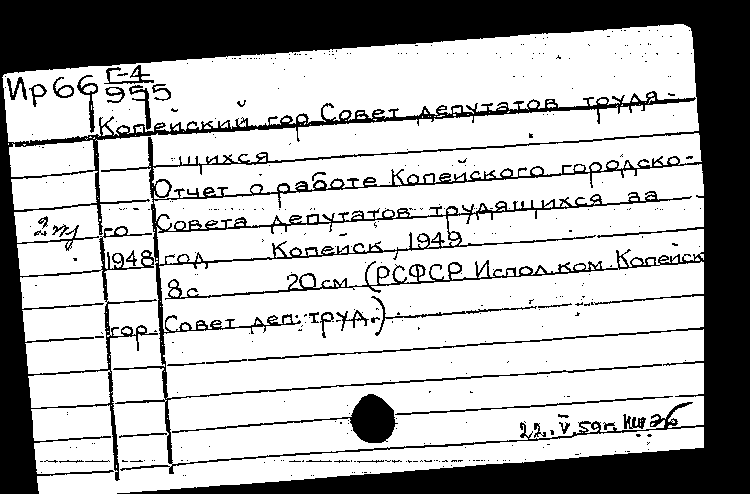 Ир66 Г-4
955
Копейский гор. Совет депутатов трудя-
щихся
Отчет о работе Копейского городско-
2 го Совета депутатов трудящихся за
1948 год Копейск, 1949
8с 20см (РСФСР. Испол.ком. Копейск
гор. Совет деп. труд.)
22.V.59г.